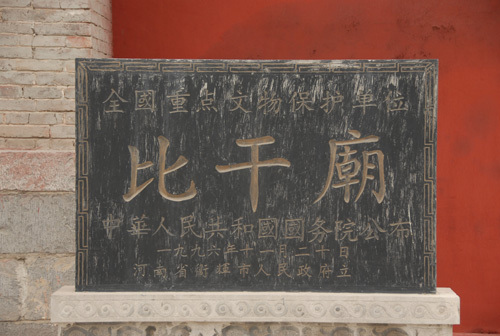 全國重点文物保护单位
比干廟
中華人民共和國國务院公布
一九九六年十一月二十日
河南省衛輝市人民政府立